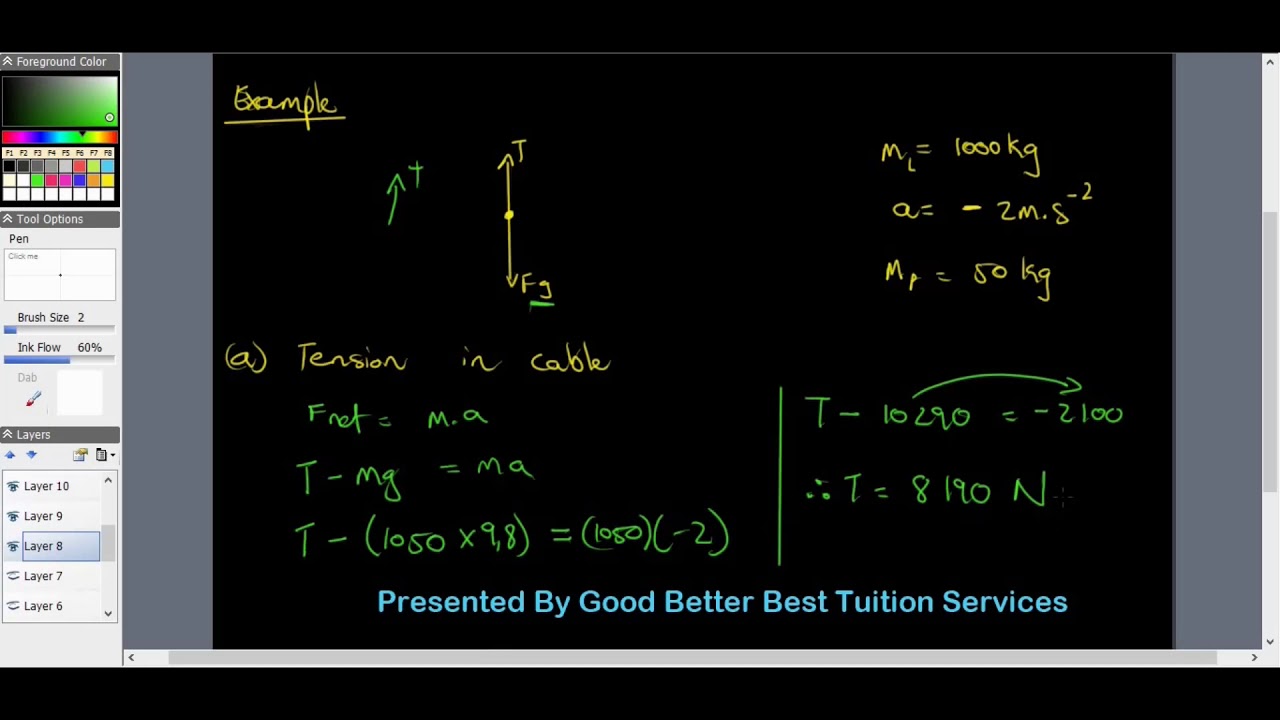 Foreground Color
F1 F2 F3 F4 F5 F6 F7 F8
Tool Options
Pen
Click me
Brush Size 2
Ink Flow 60%
Dab
Layers
Layer 10
Layer 9
Layer 8
Layer 7
Layer 6
Example
+
T
Fg
mL = 1000 kg
a = - 2 m.s⁻²
mp = 50 kg
(a) Tension in cable
Fnet = m.a
T - mg = ma
T - (1050 × 9,8) = (1050)(-2)
T - 10290 = -2100
∴ T = 8190 N
Presented By Good Better Best Tuition Services